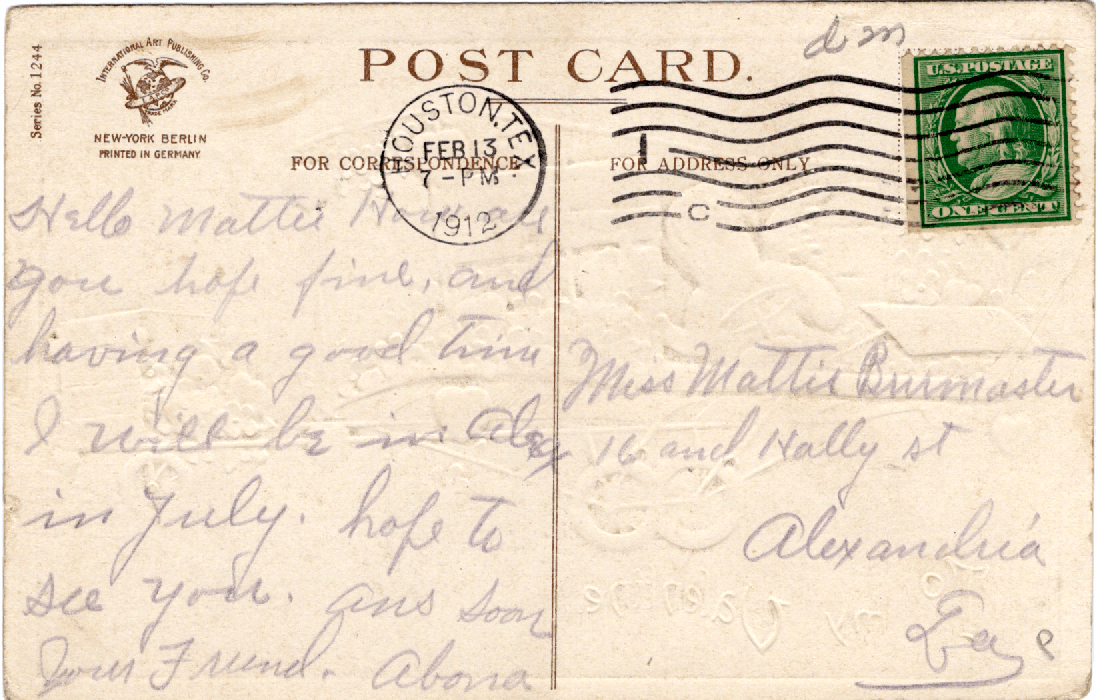 Series No. 1244
INTERNATIONAL ART PUBLISHING CO.
NEW-YORK BERLIN
PRINTED IN GERMANY
POST CARD.
d m
U.S. POSTAGE
ONE CENT
HOUSTON, TEX.
FEB 13
7-PM
1912
1
C
FOR CORRESPONDENCE
FOR ADDRESS ONLY
Hello Mattie How are
you hope fine, and
having a good time
I will be in Alex
in July. hope to
see you. ans soon
Your Friend. Abona
Miss Mattie Burmaster
16 and Hally st
Alexandria
La
P
To my Valentine